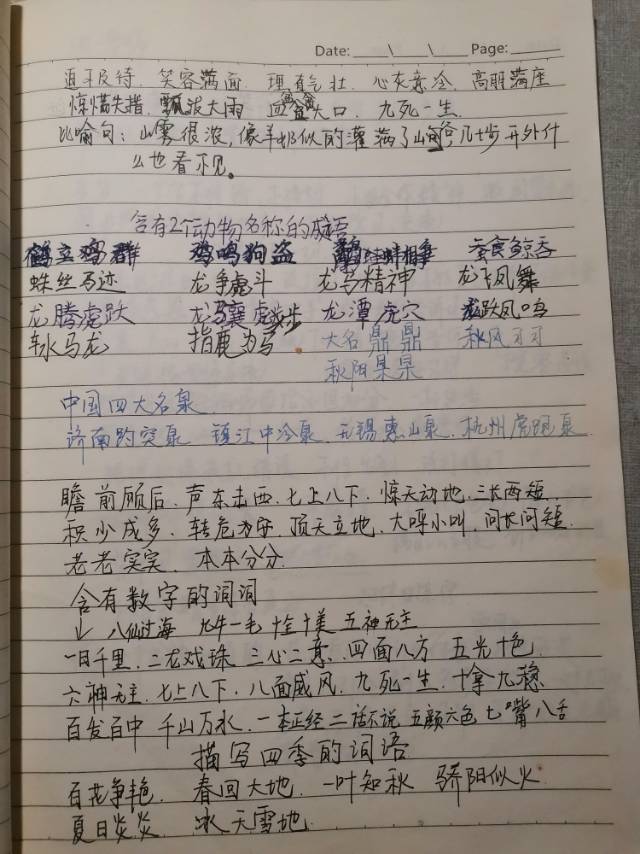 Date: ____\____\____ Page: ______
迫不及待、笑容满面、理直气壮、心灰意冷、高朋满座
惊惶失措、瓢泼大雨 血盆大口、九死一生
比喻句：山雾很浓，像羊奶似的灌满了山谷，几步开外什
么也看不见。
含有2个动物名称的成语
鹤立鸡群 鸡鸣狗盗 鹬蚌相争 蚕食鲸吞
蛛丝马迹 龙争虎斗 龙马精神 龙飞凤舞
龙腾虎跃 龙骧虎步 龙潭虎穴 龙跃凤鸣
车水马龙 指鹿为马 大名鼎鼎 秋风习习
秋阳杲杲
中国四大名泉
济南趵突泉 镇江中冷泉、无锡惠山泉、杭州虎跑泉
瞻前顾后、声东击西、七上八下、惊天动地、三长两短、
积少成多、转危为安、顶天立地、大呼小叫、问长问短、
老老实实、本本分分
含有数字的词词
↓ 八仙过海 九牛一毛 十全十美 五神无主
一日千里、二龙戏珠 三心二意、四面八方 五光十色
六神无主、七上八下、八面威风、九死一生、十拿九稳
百发百中 千山万水、一本正经 二话不说 五颜六色 七嘴八舌
描写四季的词语
百花争艳、春回大地、一叶知秋 骄阳似火
夏日炎炎、冰天雪地